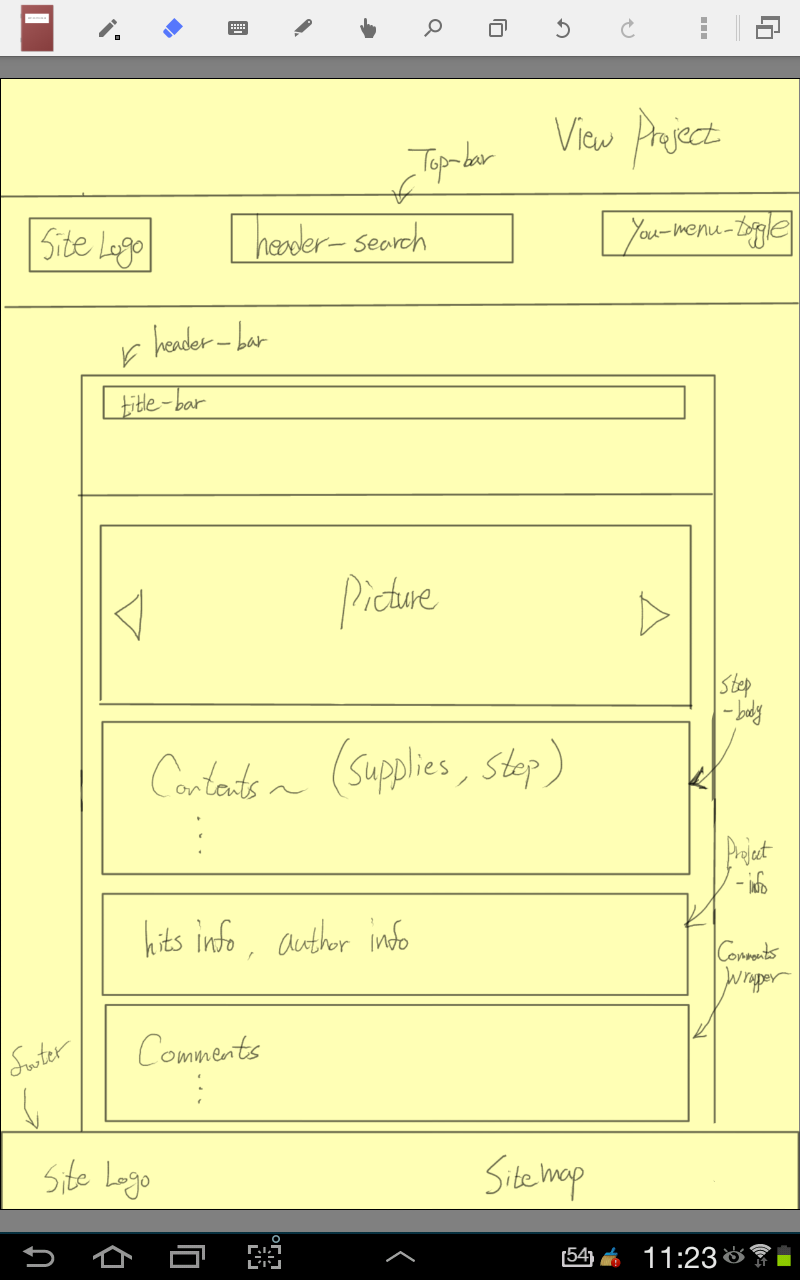 View Project
Top-bar
Site Logo
header-search
You-menu-toggle
header-bar
title-bar
Picture
Step
-body
Contents~ (supplies, step)
Project
-info
hits info, author info
Comments
Wrapper
Comments
footer
Site Logo
Sitemap
54
11:23